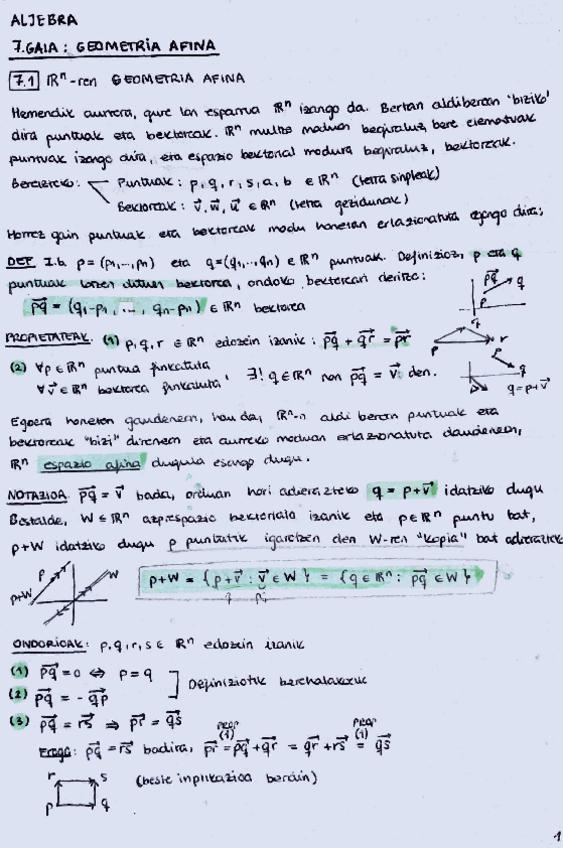 ALJEBRA
7.GAIA : GEOMETRIA AFINA
7.1 ℝⁿ-ren GEOMETRIA AFINA
Hemendik aurrera, gure lan esparrua ℝⁿ izango da. Bertan aldiberean 'biziko'
dira puntuak eta bektoreak. ℝⁿ multzo moduan begiratuz, bere elementuak
puntuak izango dira, eta espazio bektorial modura begiratuz, bektoreak.
Bereizteko: Puntuak : p, q, r, s, a, b ∈ ℝⁿ (letra sinpleak)
Bektoreak : v⃗, w⃗, u⃗ ∈ ℝⁿ (letra gezidunak)
Horrez gain puntuak eta bektoreak modu honetan erlazionatuta egongo dira:
DEF I.b. p = (p₁,...,pₙ) eta q = (q₁,...,qₙ) ∈ ℝⁿ puntuak. Definizioz, p eta q
puntuak lotzen dituen bektorea, ondoko bektoreari deritzo:
pq⃗ = (q₁-p₁, ..., qₙ-pₙ) ∈ ℝⁿ bektorea
pq⃗ p q
PROPIETATEAK. (1) p, q, r ∈ ℝⁿ edozein izanik : pq⃗ + qr⃗ = pr⃗
p q r
(2) ∀p ∈ ℝⁿ puntua finkatuta
∀v⃗ ∈ ℝⁿ bektorea finkatuta , ∃! q ∈ ℝⁿ non pq⃗ = v⃗ den.
p q = p+v⃗
Egoera honetan gaudenean, hau da, ℝⁿ-n aldi berean puntuak eta
bektoreak "bizi" direnean eta aurreko moduan erlazionatuta daudenean,
ℝⁿ espazio afina dugula esango dugu.
NOTAZIOA. pq⃗ = v⃗ bada, orduan hori adierazteko q = p+v⃗ idatziko dugu
Bestalde, W ≤ ℝⁿ azpiespazio bektoriala izanik eta p ∈ ℝⁿ puntu bat,
p+W idatziko dugu p puntutik igarotzen den W-ren "kopia" bat adierazteko
p W p+W
p+W = {p+v⃗ : v⃗ ∈ W} = {q ∈ ℝⁿ : pq⃗ ∈ W}
q pq⃗
ONDORIOAK: p, q, r, s ∈ ℝⁿ edozein izanik
(1) pq⃗ = 0 ⇔ p = q
(2) pq⃗ = - qp⃗
Definiziotik berehalakoak
(3) pq⃗ = rs⃗ ⇒ pr⃗ = qs⃗
PROP (1) PROP (1)
Froga: pq⃗ = rs⃗ badira, pr⃗ = pq⃗ + qr⃗ = qr⃗ + rs⃗ = qs⃗
r s (beste inplikazioa berdin)
p q
1